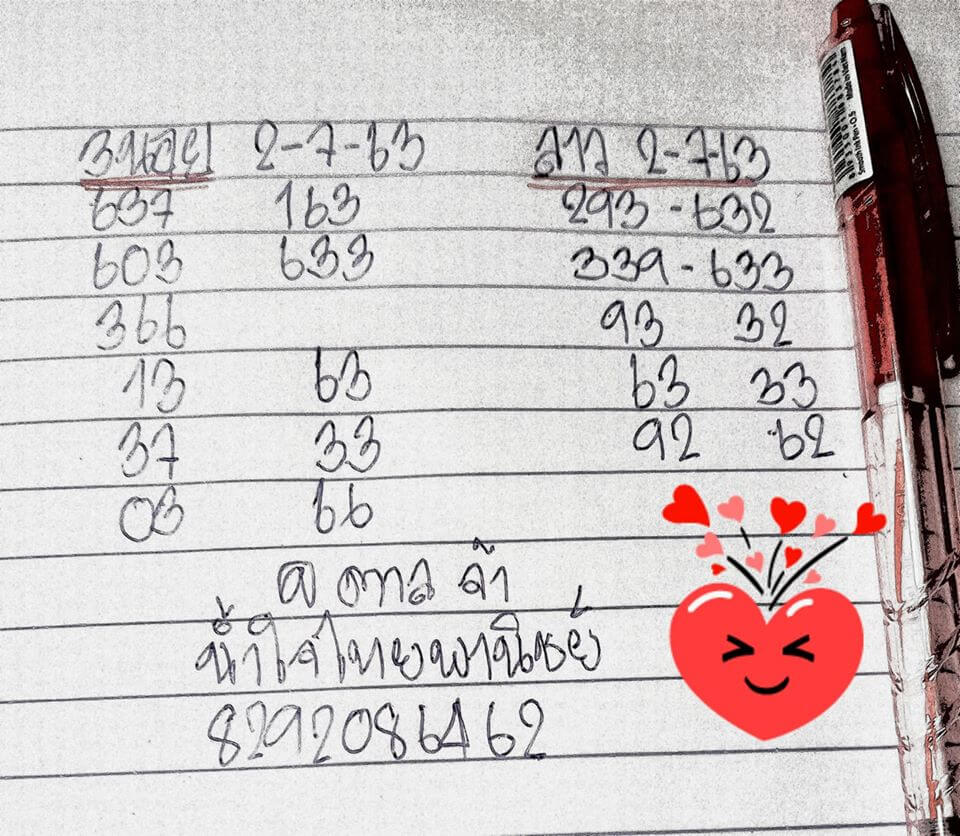 ฮนอย 2-7-63 ลาว 2-7-63
637 163 293 - 632
603 633 339 - 633
366 93 32
13 63 63 33
37 33 92 62
03 66
ตาล จ้า
น้ำใจไทยพานิชย์
8292086462